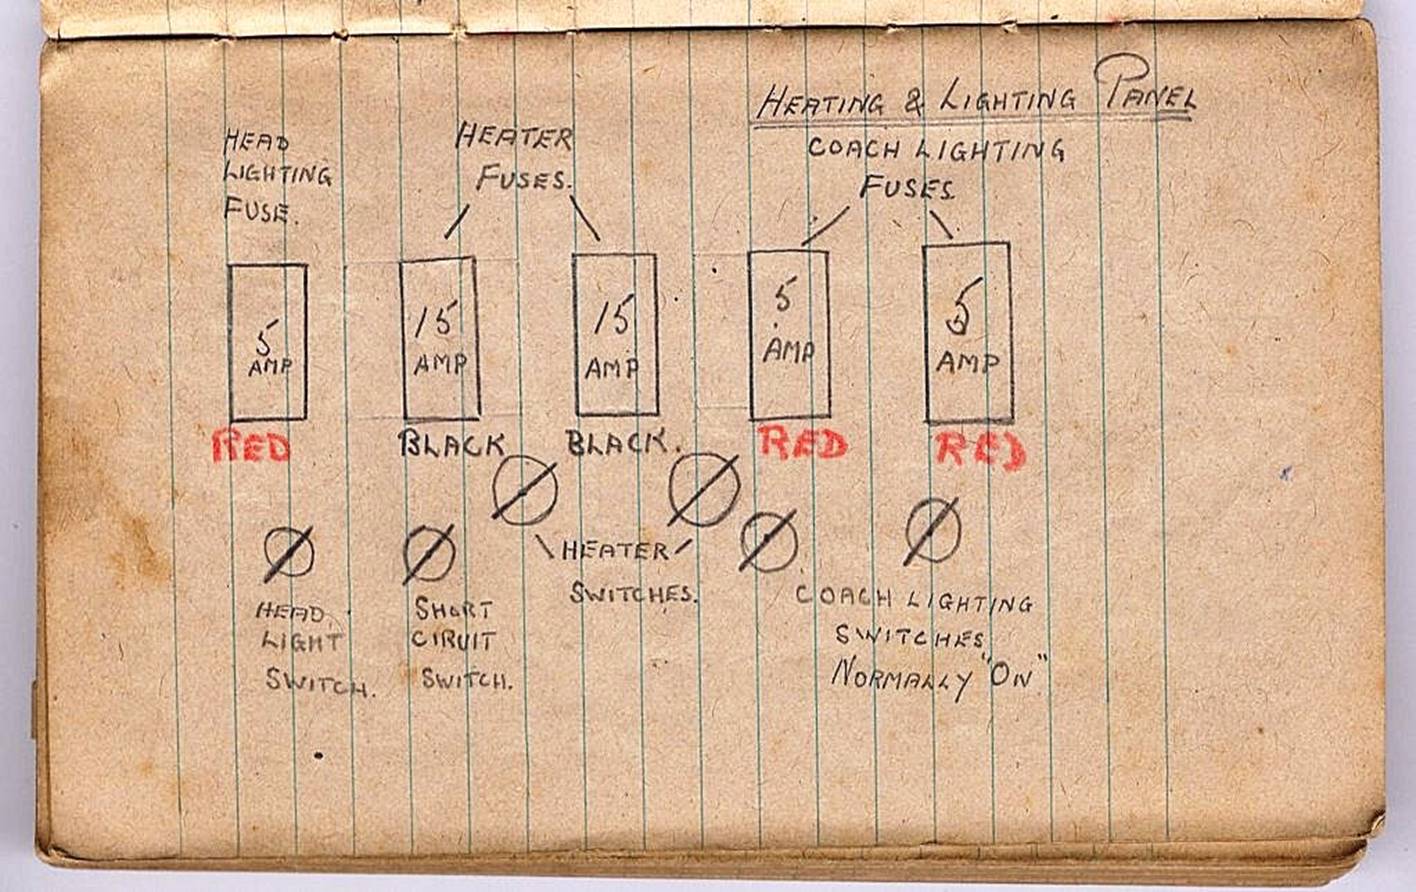 HEATING & LIGHTING PANEL
HEAD
LIGHTING
FUSE.
HEATER
FUSES.
COACH LIGHTING
FUSES
5
AMP
15
AMP
15
AMP
5
AMP
5
AMP
RED
BLACK
BLACK.
RED
RED
HEAD
LIGHT
SWITCH.
SHORT
CIRUIT
SWITCH.
HEATER
SWITCHES.
COACH LIGHTING
SWITCHES
NORMALLY "ON"